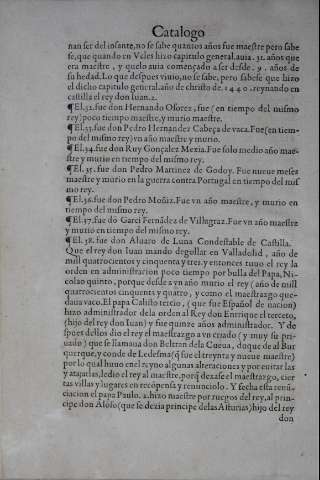 Catalogo
nan ser del infante, no se sabe quantos años fue maestre pero sabe
se, que quando en Vcles hizo capitulo general. auia. 31. años que
era maestre, y quelo auia començado a ser desde. 9. años de
su hedad. Lo que despues viuio, no se sabe, pero sabese que hizo
el dicho capitulo general. año de christo de. 1440. reynando en
castilla el rey don Iuan. 2.
¶ El. 32. fue don Hernando Osorez, fue (en tiempo del mismo
rey) poco tiempo maestre, y murio maestre.
¶ El. 33. fue don Pedro Hernandez Cabeça de vaca. Fue (en tiem-
po del mismo rey) vn año maestre y murio.
¶ El. 34. fue don Ruy Gonçalez Mexia. Fue solo medio año mae-
stre y murio en tiempo del mismo rey.
¶ El. 35. fue don Pedro Martinez de Godoy. Fue nueue meses
maestre y murio en la guerra contra Portugal en tiempo del mis
mo rey.
¶ El. 36. fue don Pedro Moñiz. Fue vn año maestre, y murio en
tiempo del mismo rey.
¶ El. 37. fue dõ Garci Fernãdez de Villagraz. Fue vn año maestre
y murio en tiempo del mismo rey.
¶ El. 38. fue don Aluaro de Luna Condestable de Castilla.
Que el rey don Iuan mando degollar en Valladolid, año de
mill quatrocientos y cinquenta y tres. y entonces tuuo el rey la
orden en administracion poco tiempo por bulla del Papa, Ni-
colao quinto, porque desde a vn año murio el rey (año de mill
quatrocientos cinquenta y quatro, y como el maestrazgo que-
daua vaco. El papa Calisto tercio, (que fue Español de nacion)
hizo administrador dela orden al Rey don Enrrique el terceto,
(hijo del rey don Iuan) y fue quinze años administrador. Y de
spues dellos dio el rey el maestrazgo a vn criado (y muy su pri-
uado) que se llamaua don Beltran dela Cueua, duque de al Bur
querque, y conde de Ledesma (q̃ fue el treynta y nueue maestre)
por lo qual huuo enel reyno algunas alteraciones y por euitar las
y atajarlas, le dio el rey al maestre, porq̃ dexase el maestrazgo, cier
tas villas y lugares en recõpensa y renunciolo. Y fecha esta renũ-
ciacion el papa Paulo. 2. hizo maestre por ruegos del rey, al prin-
cipe don Alõso (que se dezia principe delas Asturias) hijo del rey
don